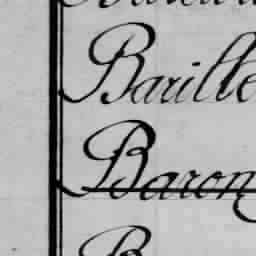 Barille
Baron